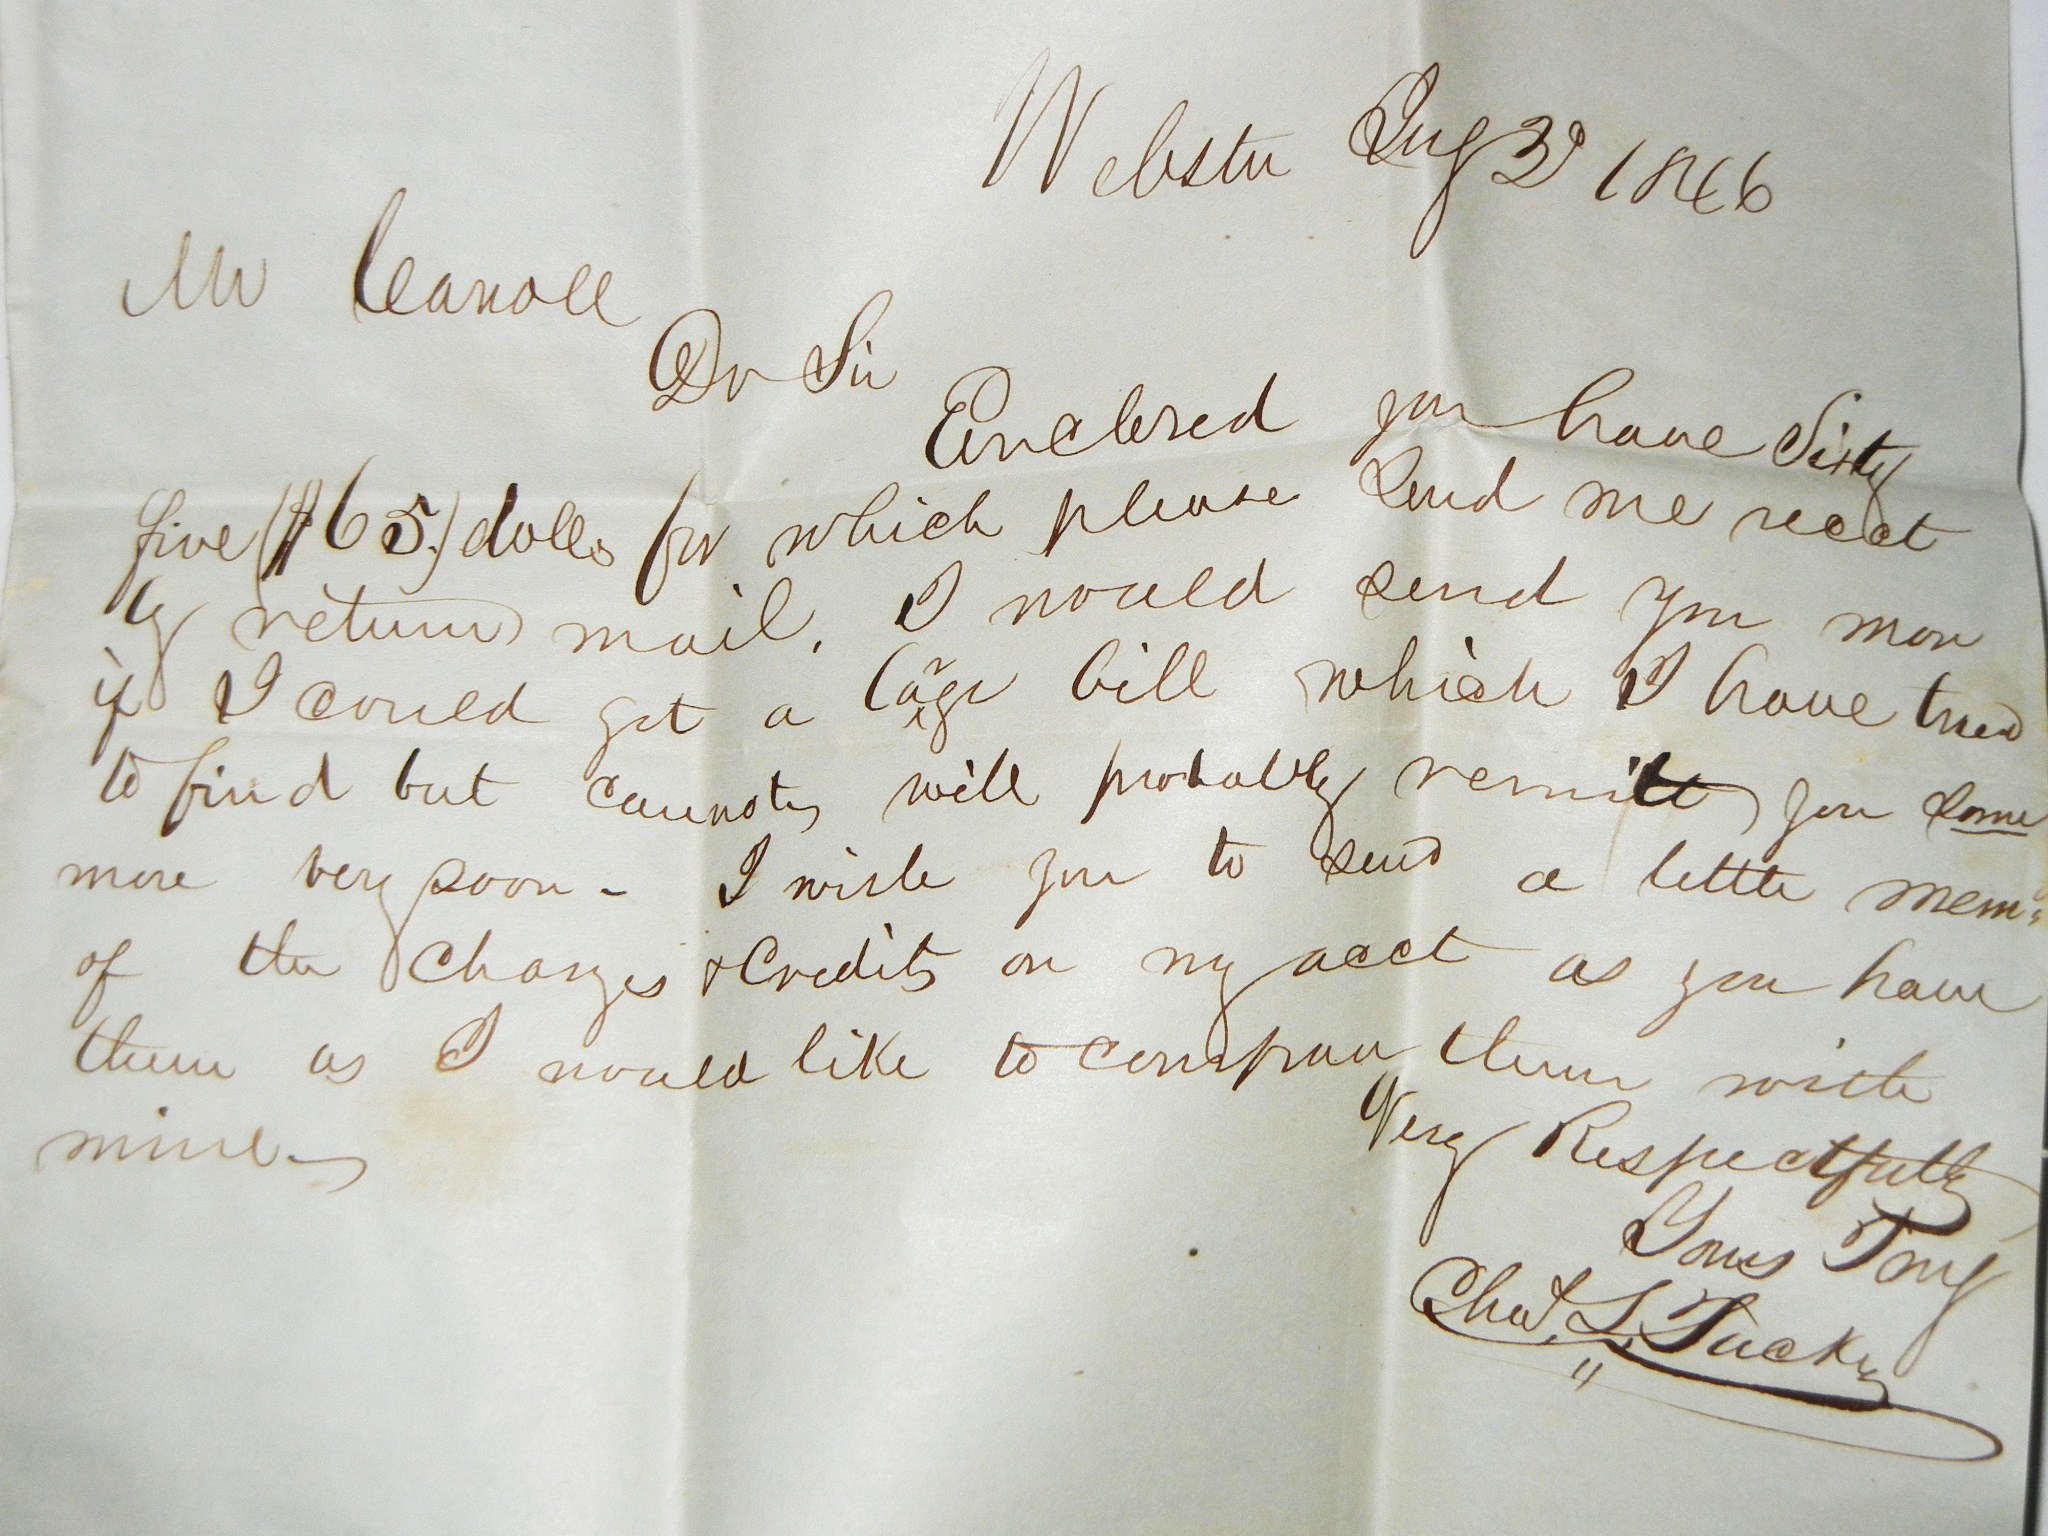 Webster Aug 3d 1846
Mr Carroll
Dr Sir
Enclosed you have Sixty
five ($65.) dolls for which please send me recct
by return mail. I would send you more
if I could get a large bill which I have tried
to find but cannot, will probably remitt you some
more very soon - I wish you to send a little mem:
of the Charges & Credits on my acct as you have
them as I would like to compare them with
mine -
Very Respectfully
Yours Truly
Chas. L. Tucker